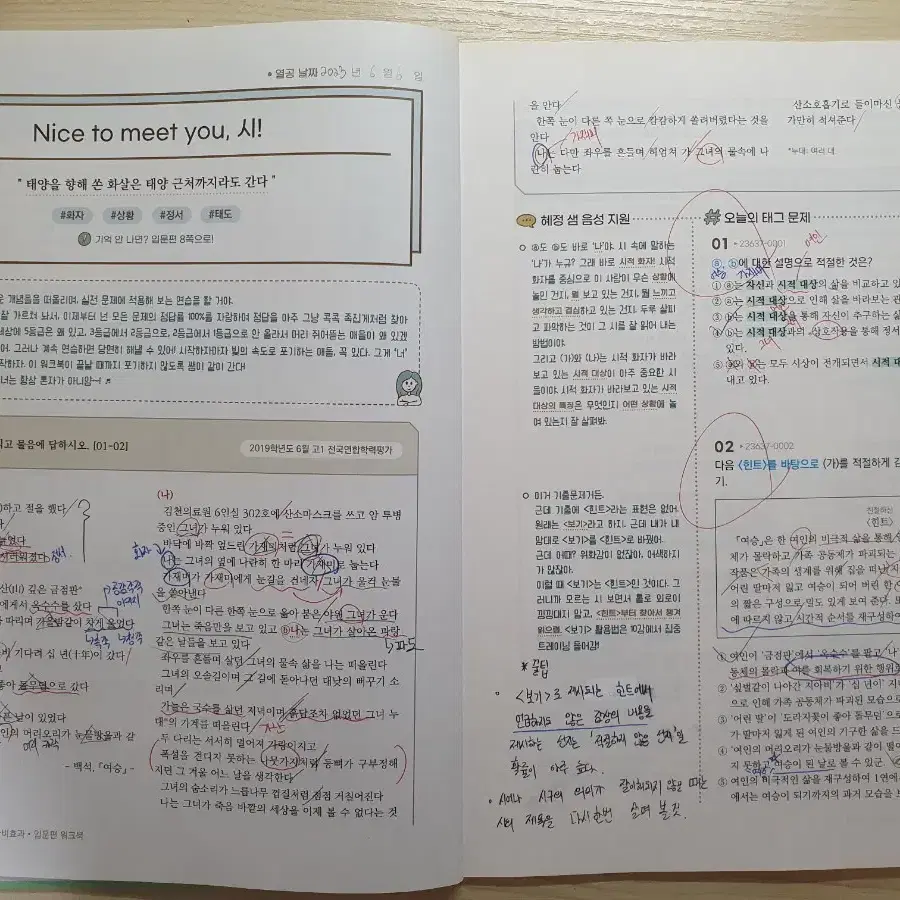 • 열공 날짜 2023 년 6 월 6 일
Nice to meet you, 시!
" 태양을 향해 쏜 화살은 태양 근처까지라도 간다 "
#화자 #상황 #정서 #태도
기억 안 나면? 입문편 8쪽으로!
개념들을 떠올리며, 실전 문제에 적용해 보는 연습을 할 거야.
잘 가르쳐 놨서, 이제부터 넌 모든 문제의 정답률 100%를 자랑하며 정답을 아주 그냥 콕콕 족집게처럼 찾아
세상에 5등급은 왜 있고, 3등급에서 2등급으로, 2등급에서 1등급으로 한 올라서 머리 쥐어뜯는 애들이 왜 있겠
어. 그러나 계속 연습하면 당연히 해낼 수 있어! 시작하자마자 빛의 속도로 포기하는 애들, 꼭 있다. 그게 '너'
작하자. 이 워크북이 끝날 때까지 포기하지 않도록 쌤이 같이 간다!
너는 항상 혼자가 아니맘~! ♬
읽고 물음에 답하시오. [01-02]
2019학년도 6월 고1 전국연합학력평가
하고 절을 했다
정서
산(山) 깊은 금점판
에게서 옥수수를 샀다
따리며 가을밤같이 차게 울었다
기다려 십 년(十年)이 갔다
좋아 돌무덤으로 갔다
날이 있었다
인의 머리오리가 눈물방울과 같
- 백석, 「여승」 -
(나)
김천의료원 6인실 302호에 산소마스크를 쓰고 암 투병
중인 그녀가 누워 있다
바닥에 바짝 엎드린 가재미처럼 그녀가 누워 있다
나는 그녀의 옆에 나란히 한 마리 가재미로 눕는다
가재미가 가재미에게 눈길을 건네자 그녀가 울컥 눈물
을 쏟아낸다
한쪽 눈이 다른 한쪽 눈으로 옮아 붙은 야윈 그녀가 운다
그녀는 죽음만을 보고 있고 ⓑ나는 그녀가 살아온 파랑
같은 날들을 보고 있다
파도
좌우를 흔들며 살던 그녀의 물속 삶을 나는 떠올린다
그녀의 오솔길이며 그 길에 돋아나던 대낮의 뻐꾸기 소
리며
가늘은 국수를 삶던 저녁이며 흙담조차 없었던 그녀 누
대*의 가계를 떠올린다
가난
두 다리는 서서히 멀어져 가랑이지고
폭설을 견디지 못하는 나뭇가지처럼 등뼈가 구부정해
지던 그 겨울 어느 날을 생각한다
그녀의 숨소리가 느릅나무 껍질처럼 점점 거칠어진다
나는 그녀가 죽음 바깥의 세상을 이제 볼 수 없다는 것
나비효과 • 입문편 워크북
을 안다
한쪽 눈이 다른 쪽 눈으로 캄캄하게 쏠려버렸다는 것을
안다
가재미
나는 다만 좌우를 흔들며 헤엄쳐 가 그녀의 물속에 나
란히 눕는다
산소호흡기로 들이마신
가만히 적셔준다
*누대: 여러 대
혜정 샘 음성 지원
ⓐ도 ⓑ도 바로 '나'야. 시 속에 말하는
'나'가 누구? 그래 바로 시적 화자! 시적
화자를 중심으로 이 사람이 무슨 상황에
놓인 건지, 뭘 보고 있는 건지, 뭘 느끼고
생각하고 결심하고 있는 건지, 두루 살피
고 파악하는 것이 그 시를 잘 읽어 내는
방법이야.
그리고 (가)와 (나)는 시적 화자가 바라
보고 있는 시적 대상이 아주 중요한 시
들이야. 시적 화자가 바라보고 있는 시적
대상의 특징은 무엇인지 어떤 상황에 놓
여 있는지 잘 살펴봐.
이거 기출문제거든.
근데 기출에 <힌트>라는 표현은 없어.
원래는 <보기>라고 하지. 근데 내가 내
맘대로 <보기>를 <힌트>로 바꿨어.
근데 어때? 위화감이 없잖아. 어색하지
가 않잖아.
이럴 때 <보기>는 <힌트>인 것이다. 그
러니까 모르는 시 보면서 홀로 외로이
낑낑대지 말고, <힌트>부터 찾아서 챙겨
읽으렴. <보기> 활용법은 10강에서 집중
트레이닝 들어감!
* 꿀팁
<보기>로 제시되는 힌트에서
언급하지도 않은 감상의 내용을
제시하는 선지는 '적절하지 않은 선지'일
확률이 아주 높다.
시어나 시구의 의미가 잘 이해되지 않을 때는
시의 제목을 다시 한번 살펴 볼 것.
# 오늘의 태그 문제
01 • 23637-0001
여인
ⓐ, ⓑ에 대한 설명으로 적절한 것은?
① ⓐ는 자신과 시적 대상의 삶을 비교하고 있
② ⓐ는 시적 대상으로 인해 삶을 바라보는 관
③ ⓑ는 시적 대상을 통해 자신이 추구하는 삶
④ ⓑ는 시적 대상과의 상호작용을 통해 정서
있다.
그녀
⑤ ⓐ와 ⓑ는 모두 시상이 전개되면서 시적 대
내고 있다.
02 • 23637-0002
다음 <힌트>를 바탕으로 (가)를 적절하게 감
기.
친절하신
<힌트>
「여승」은 한 여인의 비극적 삶을 통해
제가 몰락하고 가족 공동체가 파괴되는
작품은 가족의 생계를 위해 집을 떠난
어린 딸마저 잃고 여승이 되어 버린 한
의 짧은 구성으로 밀도 있게 보여 준다.
에 따르지 않고 시간적 순서를 재구성하여
① 여인이 '금점판'에서 '옥수수'를 팔고, '나
동체의 몰락과 이를 회복하기 위한 행위로
② '섶벌같이 나아간 지아비'가 '십 년이' 지나
으로 인해 가족 공동체가 파괴된 모습으로
③ '어린 딸'이 '도라지꽃이 좋아 돌무덤'으로
가 딸마저 잃게 된 여인의 기구한 삶을 드
④ '여인의 머리오리가 눈물방울과 같이 떨어
지 못하고 여승이 된 날로 볼 수 있군.
⑤ 여인의 비극적인 삶을 재구성하여 1연에
에서는 여승이 되기까지의 과거 모습을 보